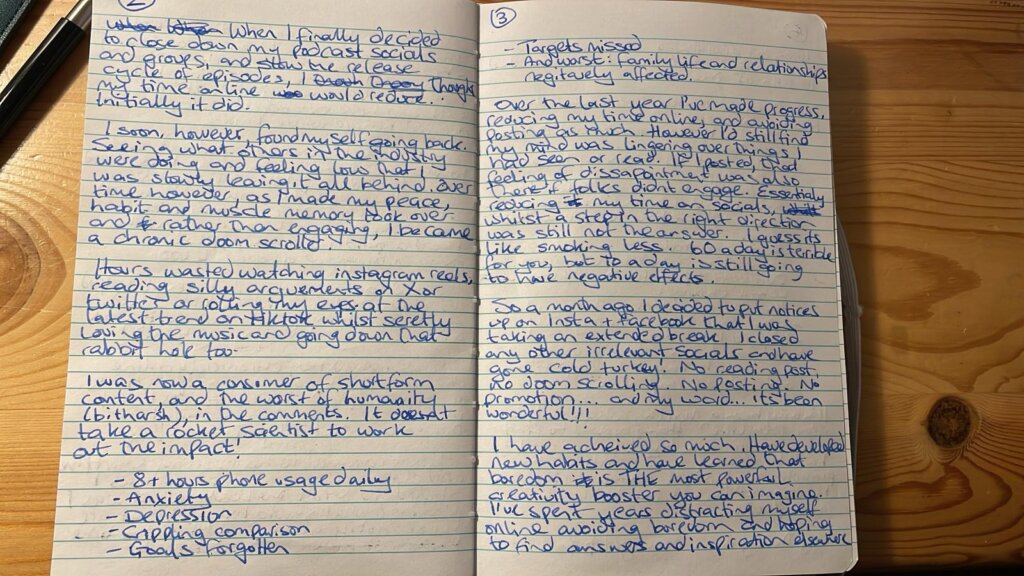 2
When When When I finally decided
to close down my podcast socials
and groups, and slow the release
cycle of episodes, I thought
my time online would reduce.
Initially it did.
I soon, however, found myself going back.
Seeing what others in the industry
were doing and feeling low that I
was slowly leaving it all behind. Over
time however, as I made my peace,
habit and muscle memory took over
and rather than engaging, I became
a chronic doom scroller.
Hours wasted watching instagram reals,
reading silly arguements on X or
twitter or rolling my eyes at the
latest trend on tiktok whilst seretly
loving the music and going down that
rabbit hole too.
I was now a consumer of short form
content, and the worst of humanity
(bit harsh), in the comments. It doesn't
take a rocket scientist to work
out the impact!
- 8+ hours phone usage daily
- Anxiety
- Depression
- Crippling comparison
- Goals forgotten
3
- Targets missed
- And worst: family life and relationships
negitavely affected.
Over the last year I've made progress,
reducing my time online, and avoiding
posting as much. However I'd still find
my mind was lingering over things I
had seen or read. If I posted, that
feeling of dissapointment was also
there if folks didnt engage. Essentially
reducing my time on socials,
whilst a step in the right direction
was still not the answer. I guess its
like smoking less. 60 a day is terible
for you, but 10 a day is still going
to have negative effects.
So a month ago, I decided to put notices
up on Insta + Facebook that I was
taking an extended break. I closed
any other irrelevant socials and have
gone cold turkey! No reading post.
No doom scrolling. No posting. No
promotion.... and my word... its been
wonderful!!!
I have acheived so much. Have developed
new habits and have learned that
boredom is THE most powerful
creativity booster you can imagine.
I've spent years distracting myself
online avoiding boredom and hoping
to find answers and inspiration elsewhere